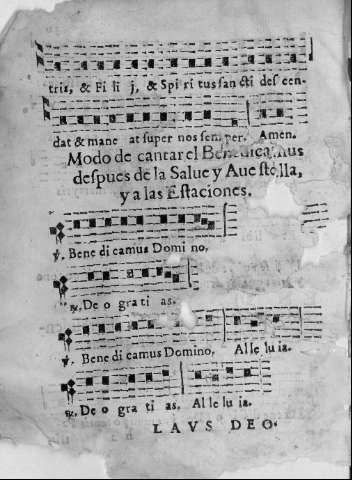 tris, & Fi li j, & Spi ri tus san cti des cen-
dat & mane at super nos sem per. Amen.
Modo de cantar el Benedicamus
despues de la Salue y Aue stella,
y a las Estaciones.
℣. Bene di camus Domi no.
℟. De o gra ti as.
℣. Bene di camus Domino. Al le lu ia.
℟. De o gra ti as. Al le lu ia.
LAVS DEO.